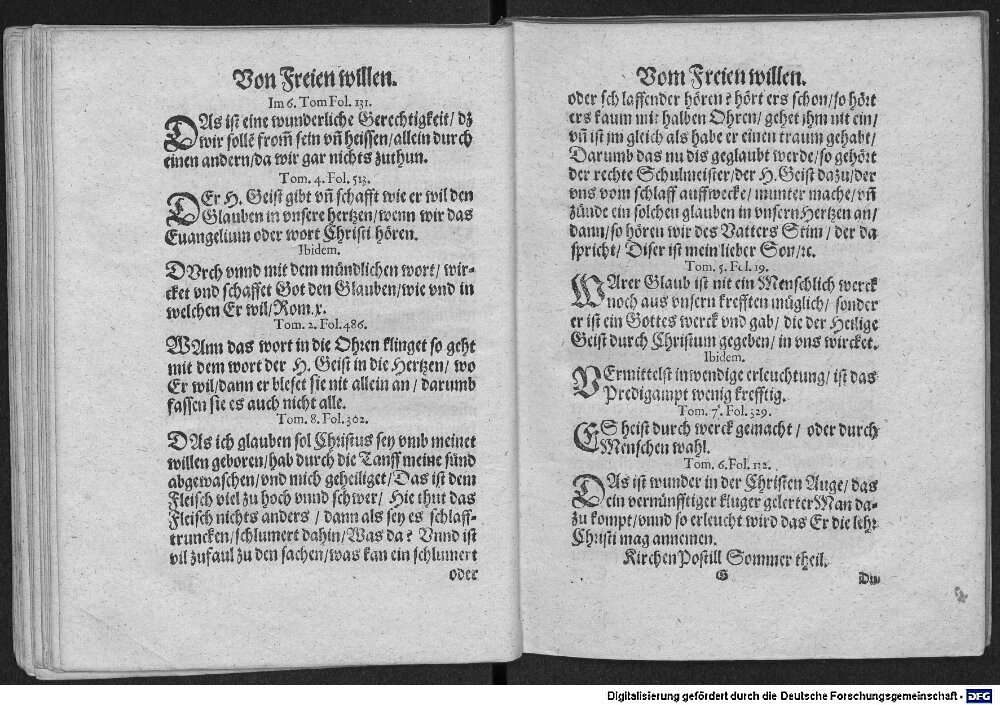 Von Freien willen.
Im 6. Tom Fol. 131.
DAs ist eine wunderliche Gerechtigkeit/ dz
wir sollẽ from̃ sein vñ heissen/allein durch
einen andern/da wir gar nichts zuthun.
Tom. 4. Fol. 513.
DEr H. Geist gibt vñ schafft wie er wil den
Glauben in vnsere hertzen/wenn wir das
Euangelium oder wort Christi hören.
Ibidem.
DVrch vnnd mit dem mündlichen wort/ wir-
cket vnd schaffet Got den Glauben/wie vnd in
welchen Er wil/Rom. x.
Tom. 2. Fol. 486.
WAnn das wort in die Ohren klinget so geht
mit dem wort der H. Geist in die Hertzen/ wo
Er wil/dann er bleset sie nit allein an/ darumb
fassen sie es auch nicht alle.
Tom. 8. Fol. 302.
DAs ich glauben sol Christus sey vmb meinet
willen geboren/hab durch die Tauff meine sünd
abgewaschen/vnd mich geheiliget/Das ist dem
Fleisch viel zu hoch vnnd schwer/ Hie thut das
Fleisch nichts anders/ dann als sey es schlaff-
truncken/schlumert dahin/Was da? Vnnd ist
vil zufaul zu den sachen/was kan ein schlumert
oder
Vom Freien willen.
oder schlaffender hören? hört ers schon/so hört
ers kaum mit halben Ohren/ gehet ihm nit ein/
vñ ist jm gleich als habe er einen traum gehabt/
Darumb das nu dis geglaubt werde/so gehört
der rechte Schulmeister/der H. Geist dazu/der
vns vom schlaff auffwecke/ munter mache/vñ
zünde ein solchen glauben in vnsern Hertzen an/
dann/so hören wir des Vatters Stim/ der da
spricht/ Diser ist mein lieber Son/ꝛc.
Tom. 5. Fol. 19.
WArer Glaub ist nit ein Menschlich werck
noch aus vnsern krefften müglich/ sonder
er ist ein Gottes werck vnd gab/ die der Heilige
Geist durch Christum gegeben/ in vns wircket.
Ibidem.
VErmittelst inwendige erleuchtung/ ist das
Predigampt wenig krefftig.
Tom. 7. Fol. 329.
ES heist durch werck gemacht/ oder durch
Menschen wahl.
Tom. 6. Fol. 132.
DAs ist wunder in der Christen Auge/ das
ein vernünfftiger kluger gelerter Man da-
zu kompt/vnnd so erleucht wird das Er die lehr
Christi mag annemen.
Kirchen Postill Sommer theil.
G
Du
Digitalisierung gefördert durch die Deutsche Forschungsgemeinschaft - DFG